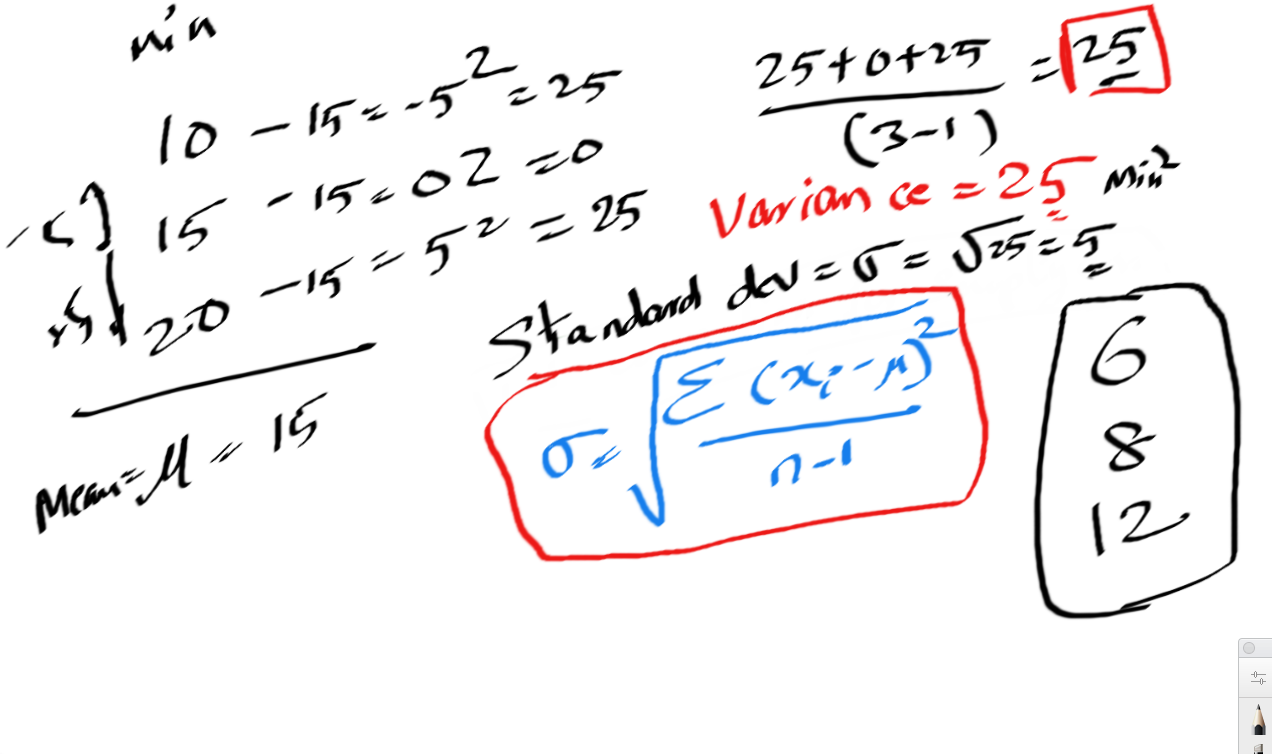 min
10 - 15 = -5² = 25
15 - 15 = 02 = 0
20 - 15 = 5² = 25
Mean = μ = 15
25+0+25 = 25
(3-1)
Variance = 25 Min²
Standard dev = σ = √25 = 5
σ = √ Σ (xᵢ - μ)²
n-1
6
8
12